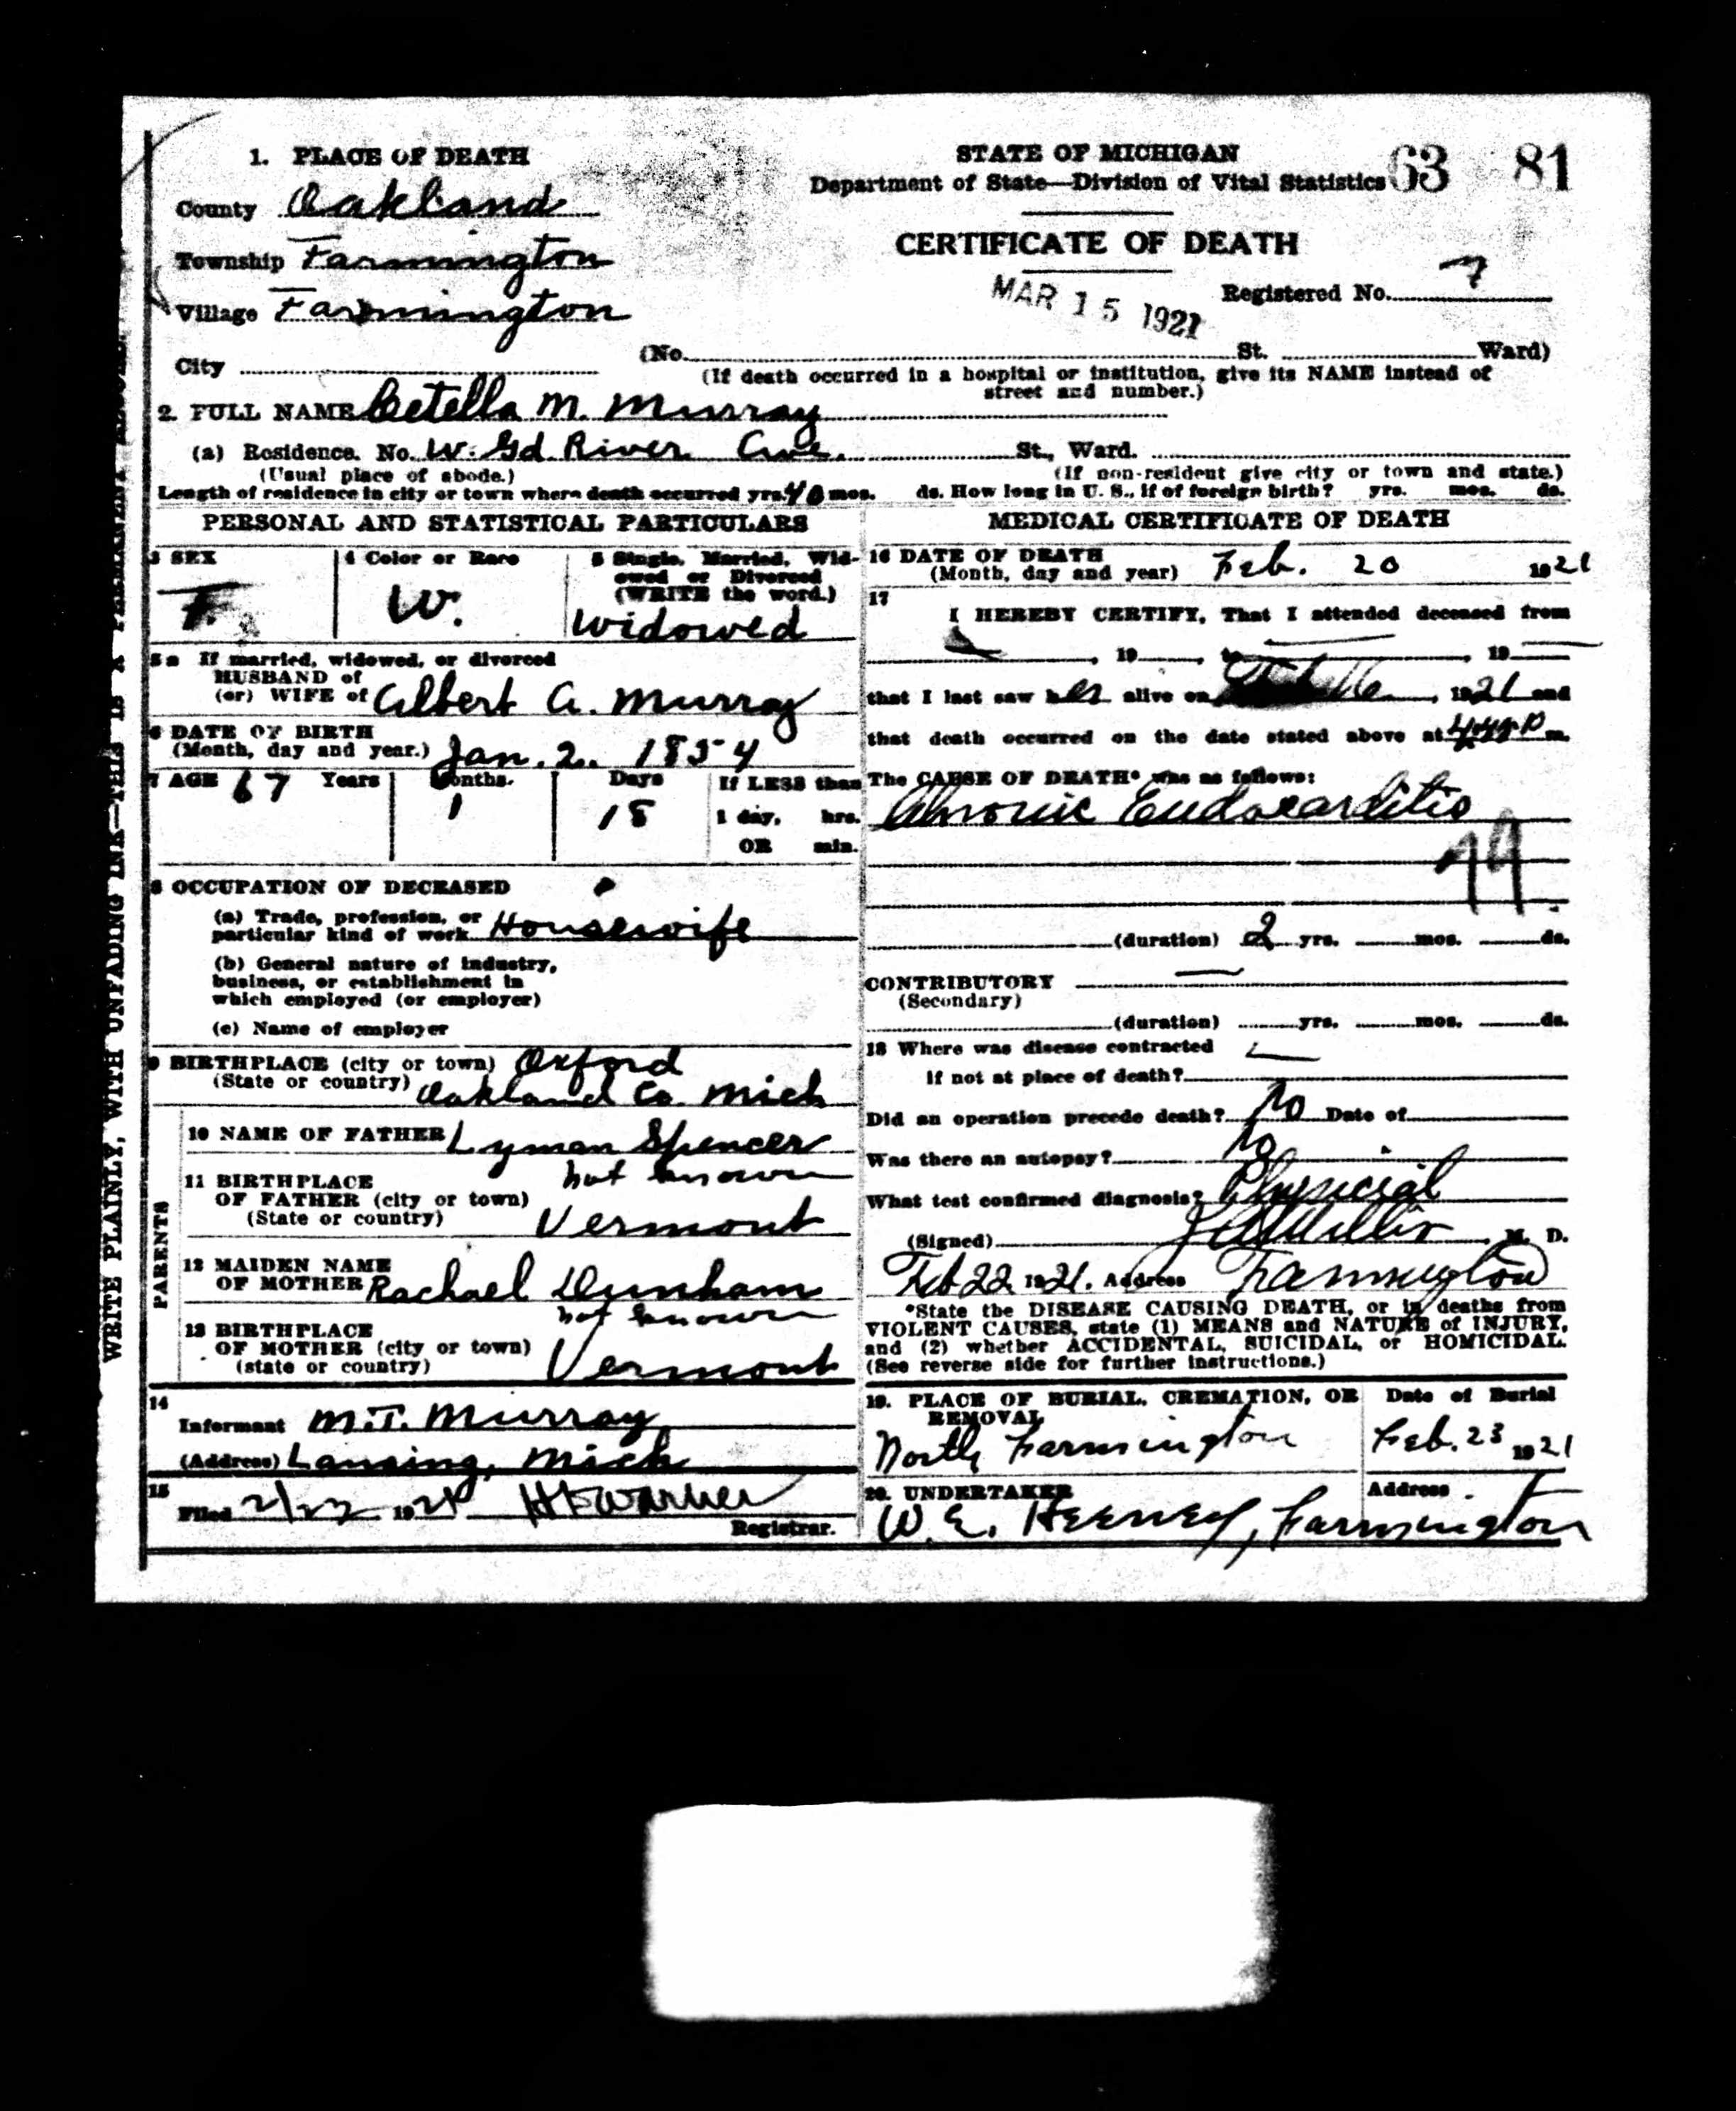 1. PLACE OF DEATH
County Oakland
Township Farmington
Village Farmington
City
STATE OF MICHIGAN
Department of State—Division of Vital Statistics
63 81
CERTIFICATE OF DEATH
MAR 15 1921
Registered No. 7
(No. St. Ward)
(If death occurred in a hospital or institution, give its NAME instead of
street and number.)
2. FULL NAME M. Murray
(a) Residence. No. W. Gd River Ave. St., Ward.
(Usual place of abode.) (If non-resident give city or town and state.)
Length of residence in city or town where death occurred yrs. 40 mos. ds. How long in U. S., if of foreign birth? yrs. mos. ds.
PERSONAL AND STATISTICAL PARTICULARS
3 SEX
F.
4 Color or Race
W.
5 Single, Married, Wid-
owed or Divorced
(WRITE the word.)
Widowed
5a If married, widowed, or divorced
HUSBAND of
(or) WIFE of Albert A. Murray
6 DATE OF BIRTH
(Month, day and year.) Jan. 2. 1854
7 AGE 67 Years
Months.
1
Days
18
If LESS than
1 day, hrs.
OR min.
8 OCCUPATION OF DECEASED
(a) Trade, profession, or
particular kind of work Housewife
(b) General nature of industry,
business, or establishment in
which employed (or employer)
(c) Name of employer
9 BIRTHPLACE (city or town) Oxford
(State or country) Oakland Co. Mich
PARENTS
10 NAME OF FATHER Lyman Spencer
11 BIRTHPLACE not known
OF FATHER (city or town)
(State or country) Vermont
12 MAIDEN NAME
OF MOTHER Rachael Dunham
not known
13 BIRTHPLACE
OF MOTHER (city or town)
(state or country) Vermont
14
Informant M.T. Murray
(Address) Lansing, Mich
15
Filed 1921 Warner
Registrar.
MEDICAL CERTIFICATE OF DEATH
16 DATE OF DEATH
(Month, day and year) Feb. 20 1921
17
I HEREBY CERTIFY, That I attended deceased from
, 19 , to , 19
that I last saw her alive on , 1921 and
that death occurred on the date stated above at P m.
The CAUSE OF DEATH* was as follows:
Chronic Endocarditis
(duration) 2 yrs. mos. ds.
CONTRIBUTORY —
(Secondary)
(duration) yrs. mos. ds.
18 Where was disease contracted
if not at place of death?
Did an operation precede death? No Date of
Was there an autopsy? No
What test confirmed diagnosis? Physicial
(Signed) M. D.
Feb 22 1921. Address Farmington
*State the DISEASE CAUSING DEATH, or in deaths from
VIOLENT CAUSES, state (1) MEANS and NATURE of INJURY,
and (2) whether ACCIDENTAL, SUICIDAL, or HOMICIDAL.
(See reverse side for further instructions.)
19. PLACE OF BURIAL, CREMATION, OR
REMOVAL
North Farmington
Date of Burial
Feb. 23 1921
20. UNDERTAKER Address
W. E. Heeney, Farmington
WRITE PLAINLY, WITH UNFADING INK—THIS IS A PERMANENT